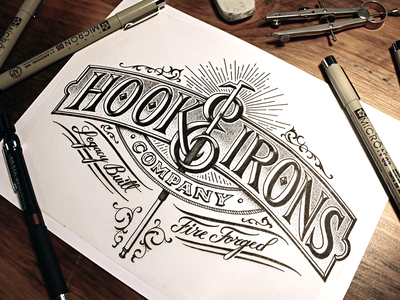 HOOK & IRONS
COMPANY
Legacy Built
Fire Forged
MICRON
MICRON